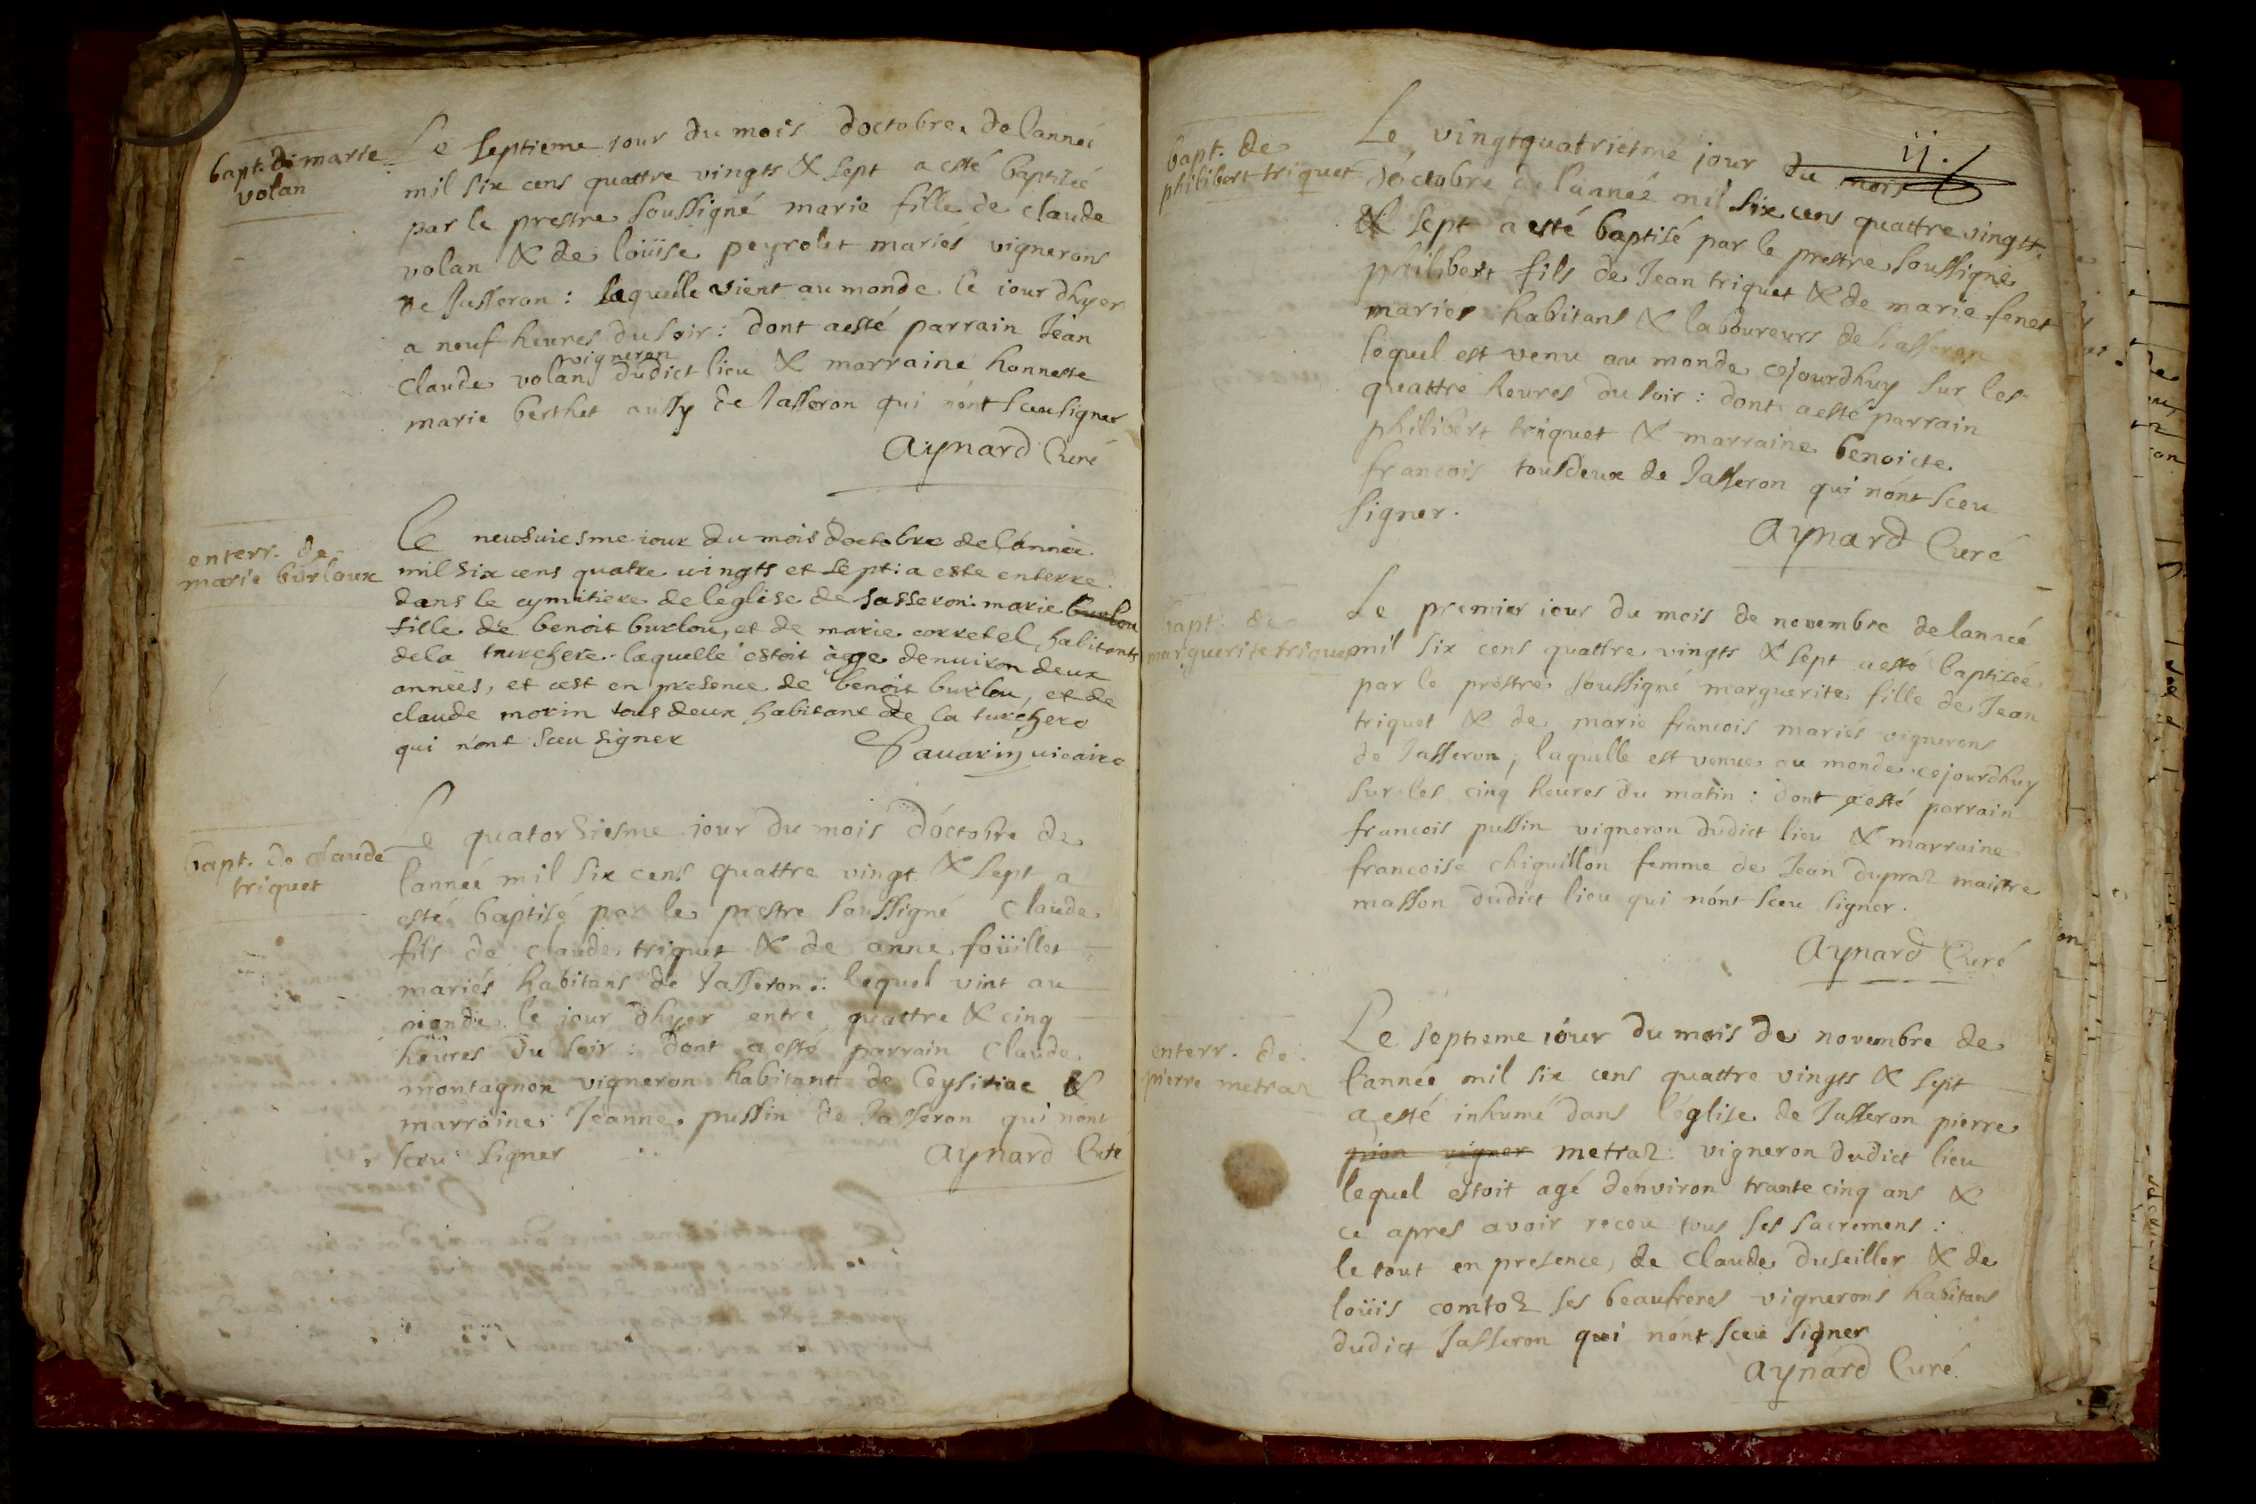 bapt. de marie
volan
Le septieme iour du mois doctobre de lanneé
mil six cens quattre vingts & sept a esté baptiseé
par le prestre soussigné marie fille de claude
volan & de loüise peyrolet mariés vignerons
de Jasseron : laquelle vient au monde le iour dhyer
a neuf heures du soir : dont a esté parrain Jean
vigneron
claude volan dudict lieu & marraine honneste
marie berthet aussy de Jasseron qui nont sceu signer
Aynard Curé
enterr. de
marie burloux
Le neufuiesme iour du mois doctobre de lánneé
mil six cens quatre uingts et sept : a este enterre
dans le cymitiere de léglise de Jasseron marie burlou
fille de benoit burlou, et de marie corretel habitants
de la turchere. laquelle estoit ágé denuiron deux
anneës, et cest en presence de benoit burlou, et de
claude morin tous deux habitant de la turchere
qui nont sceu signer
Pauarin uicaire
bapt. de claude
triquet
Le quatorsiesme iour du mois dóctobre de
lanneé mil six cens quattre vingt & sept a
esté baptisé par le prestre soussigné claude
fils de claude triquet & de anne foüillet
mariés habitans de Jasseron : lequel vint au
monde le jour dhyer entre quattre & cinq
heûres du soir : dont a esté parrain claude
montagnon vigneron habitant de Ceysiriac &
marraine Jeanne pussin de Jasseron qui nónt
sceu signer
Aynard Curé
ij.
bapt. de
philibert triquet
Le vingtquatriésme jour du mois
dóctobre de lánneé mil six cens quattre vingts
& sept a esté baptisé par le prestre soussigné
philibert fils de Jean triquet & de marie fenet
mariés habitans & laboureurs de Jasseron
lequel est venu au monde cejourdhuy sur les
quattre heures du soir : dont a esté parrain
philibert triquet & marraine benoicte
francois tousdeux de Jasseron qui nónt sceu
signer.
Aynard Curé
bapt. de
marguerite triquet
Le premier iour du mois de novembre de lanneé
mil six cens quattre vingts & sept a esté baptiseé
par le prestre soussigné marguerite fille de Jean
triquet & de marie francois mariés vignerons
de Jasseron, laquelle est venue au monde cejourdhuy
sur les cinq heures du matin : dont a esté parrain
francois pussin vigneron dudict lieu & marraine
francoise chiquillon femme de Jean dupraz maistre
masson dudict lieu qui nónt sceu signer.
Aynard Curé
enterr. de
pierre metraz
Le septieme iour du mois de novembre de
lánneé mil six cens quattre vingts & sept
a esté inhumé dans léglise de Jasseron pierre
pion vigner metraz vigneron dudict lieu
lequel estoit agé dénviron trante cinq ans &
ce apres avoir receu tous ses sacremens :
le tout en presence, de claude duseiller & de
loüis comtoz ses beaufreres vignerons habitans
dudict Jasseron qui nónt sceu signer
Aynard Curé.